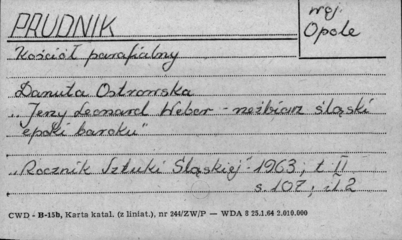 PRUDNIK
woj.
Opole
Kościół parafialny
Danuta Ostrowska
„Jerzy Leonard Weber - rzeźbiarz śląski
epoki baroku"
„Rocznik Sztuki Śląskiej" 1963, t. II
s. 107, il. 2
CWD - B-15b, Karta katal. (z liniat.), nr 244/ZW/P — WDA 8 25.1.64 2.010.000